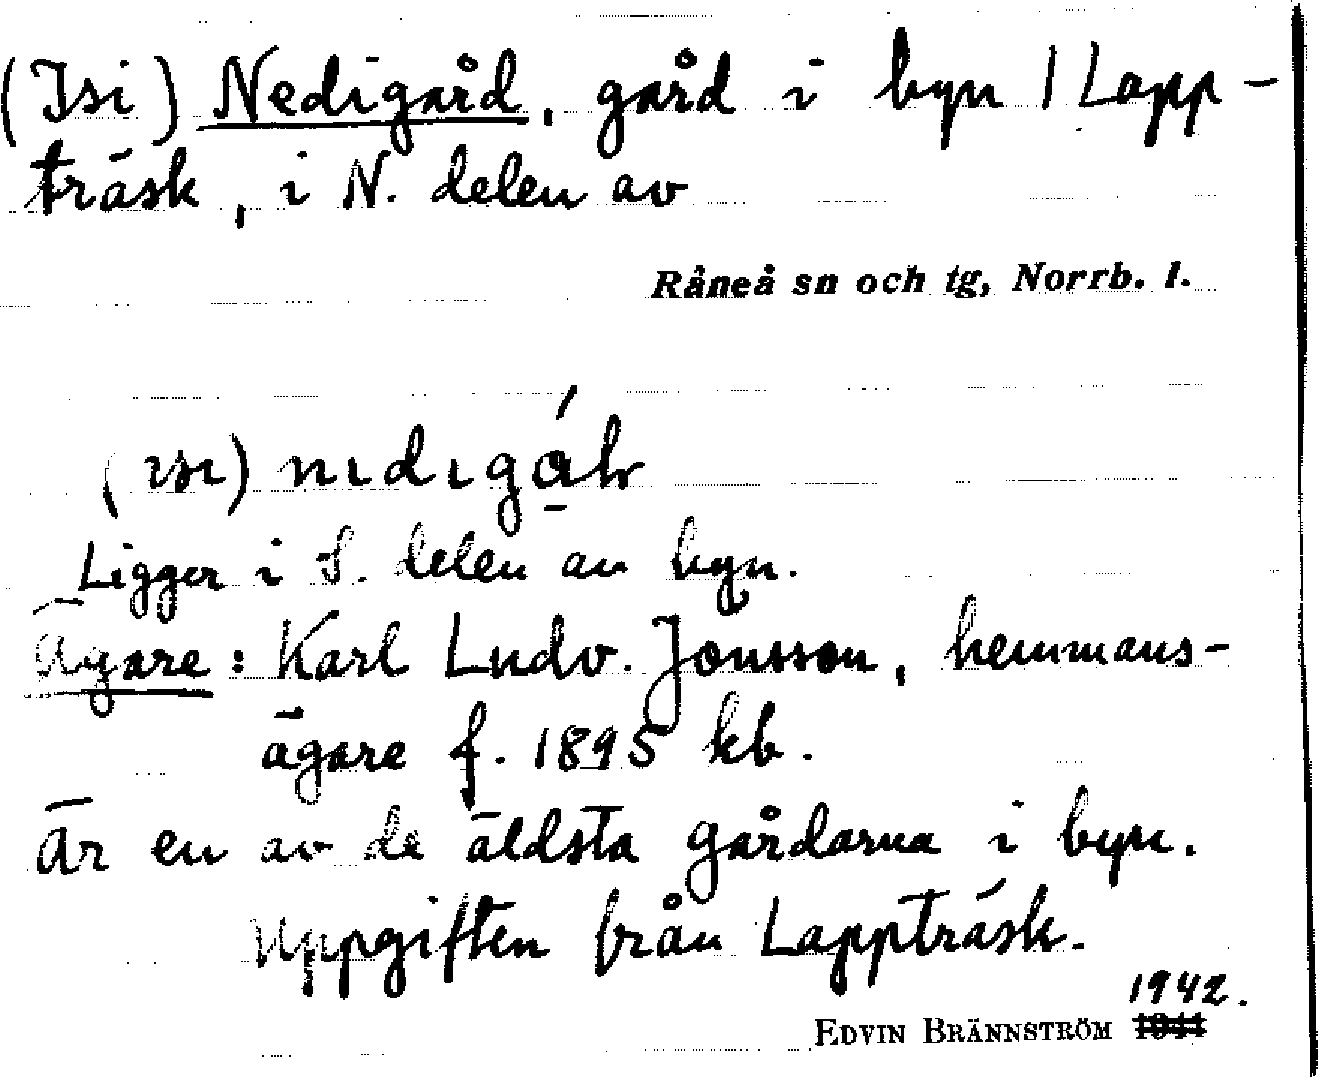 (Isi) Nedigård, gård i byn 1 Lapp-
träsk, i N. delen av
Råneå sn och tg, Norrb. l.
(ısı) nıdıgáh
Ligger i S. delen av byn.
Ägare: Karl Ludv. Jonsson, hemmans-
ägare f. 1895 kb.
Är en av de äldsta gårdarna i byn.
Uppgiften från Lappträsk.
1942.
EDVIN BRÄNNSTRÖM 1941